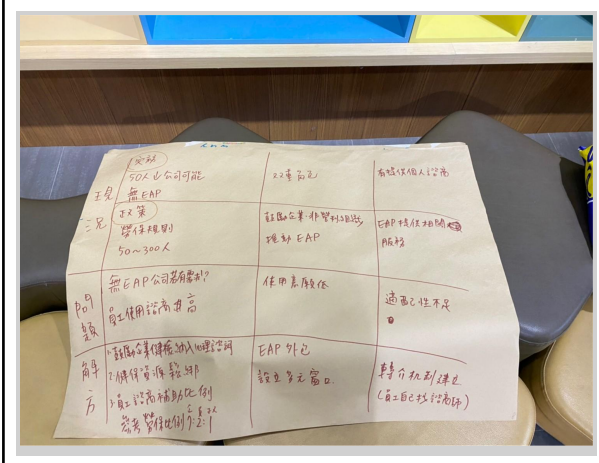 現況
50人↓公司可能
無EAP
有提供個人諮商
政策
勞保規則
50~300人
鼓勵企業、非營利組織
推動EAP
EAP提供相關
服務
問題
無EAP公司若有需求?
員工使用諮商
使用意願低
適配性不足
解方
1.鼓勵企業健檢納入心理諮詢
2.健保資源鬆綁
3.員工諮商補助比例
參考勞保比例7:2:1
EAP外包
設立多元窗口
轉介機制建立
(員工自己找諮商師)